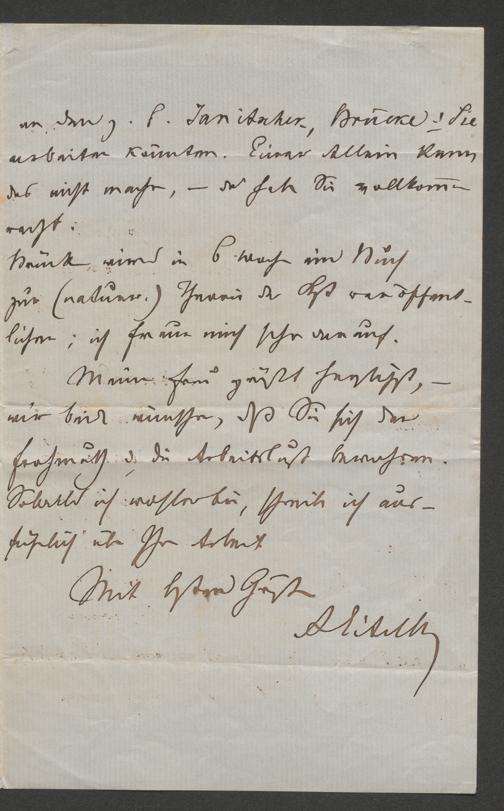 an dem z. B. Janitschek, Brücke & Sie
arbeiten könnten. Einer allein kann
das nicht machen, – da haben Sie vollkomm̄
recht.
Brücke wird in 6 Woch ein Buch
zur (naturw.) Theorie der Kst veröffent-
lichen; ich freue mich sehr darauf.
Meine Frau grüßt herzlichst, –
wir beide wünschen, dß Sie sich den
Frohmuth & die Arbeitslust bewahren.
Sobald ich wohler bin, schreibe ich aus-
führlich über Ihre Arbeit
Mit bestem Gruß